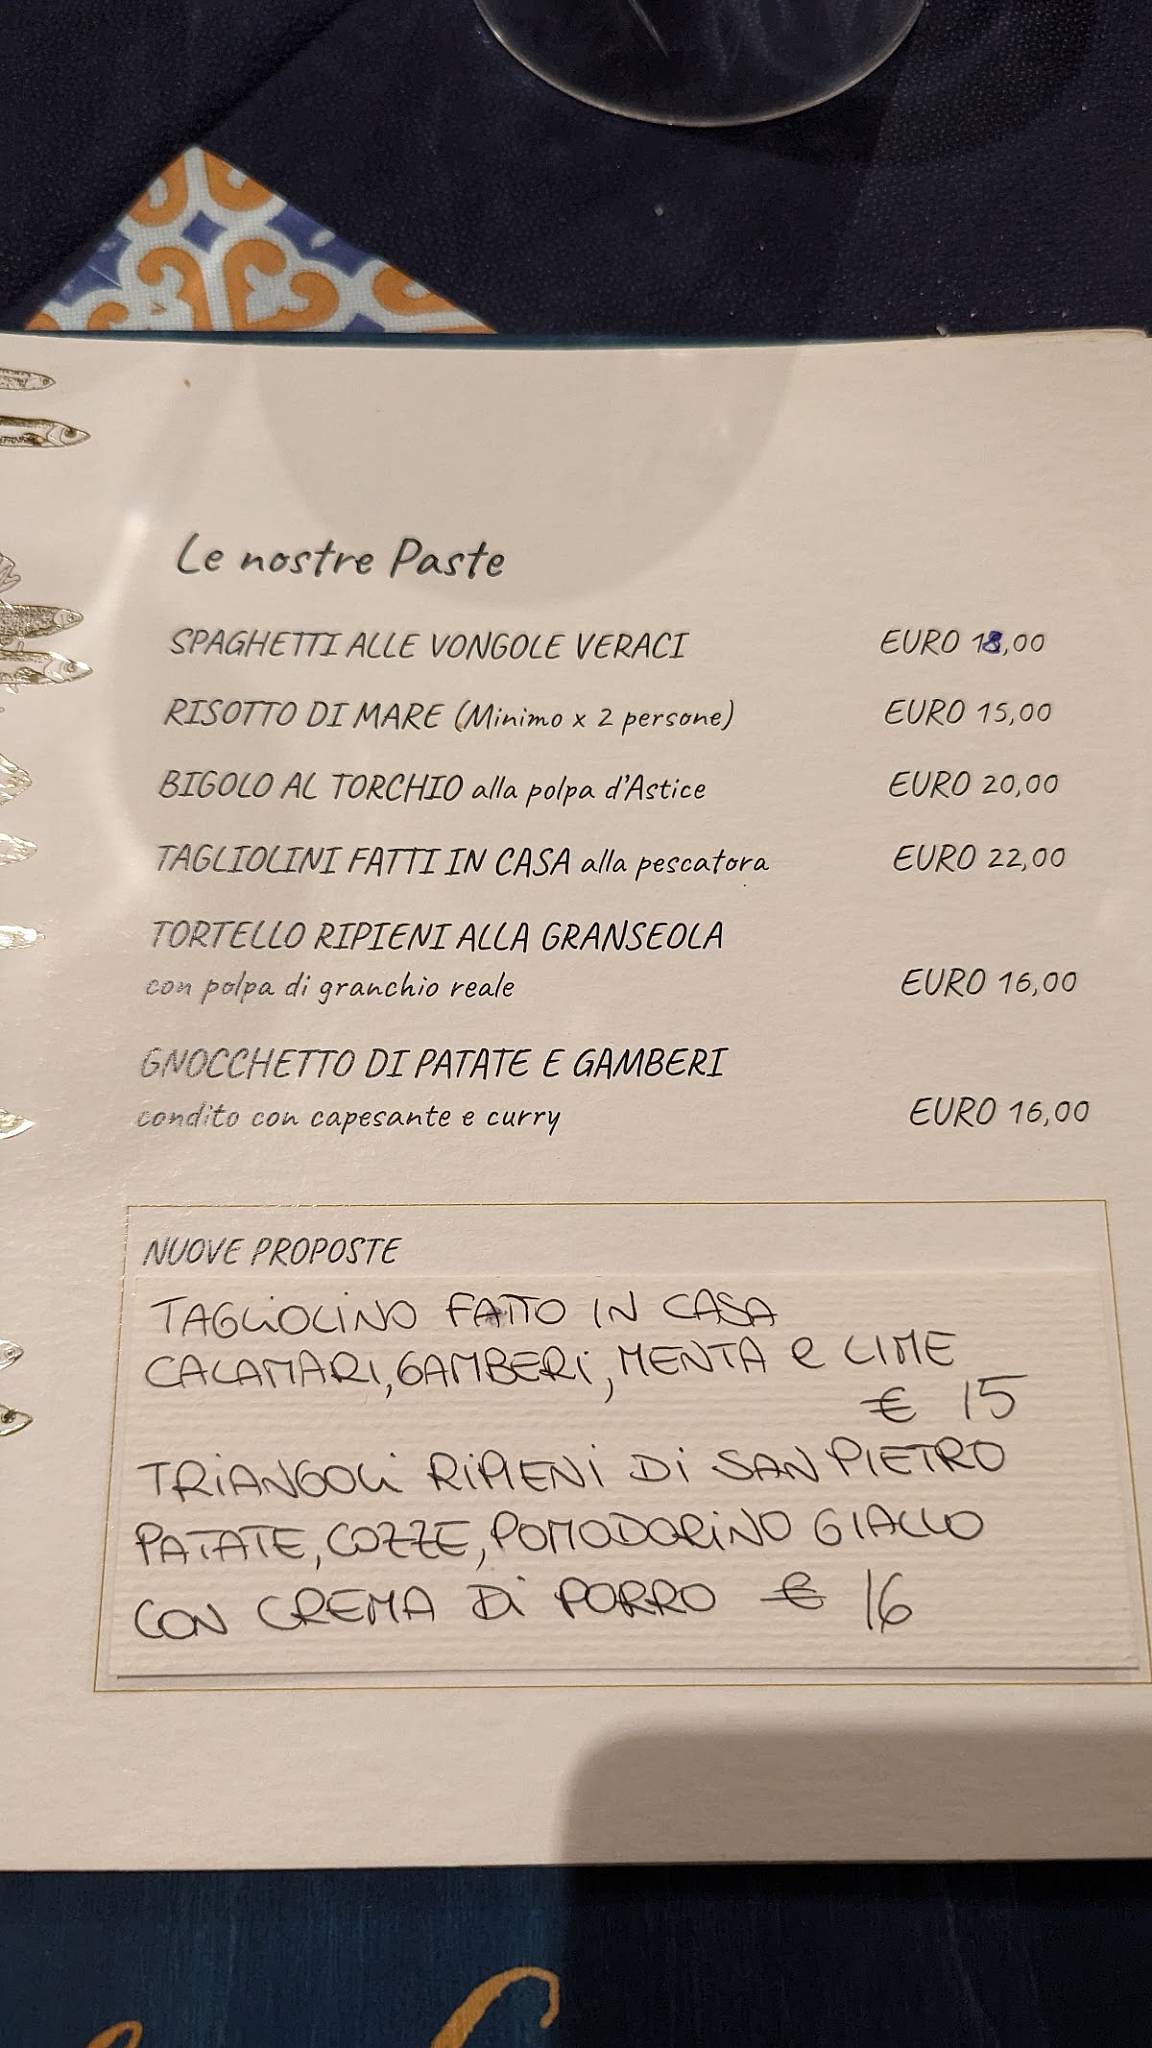 Le nostre Paste
SPAGHETTI ALLE VONGOLE VERACI EURO 18,00
RISOTTO DI MARE (Minimo x 2 persone) EURO 15,00
BIGOLO AL TORCHIO alla polpa d'Astice EURO 20,00
TAGLIOLINI FATTI IN CASA alla pescatora EURO 22,00
TORTELLO RIPIENI ALLA GRANSEOLA
con polpa di granchio reale EURO 16,00
GNOCCHETTO DI PATATE E GAMBERI
condito con capesante e curry EURO 16,00
NUOVE PROPOSTE
TAGLIOLINO FATTO IN CASA
CALAMARI, GAMBERI, MENTA e LIME
€ 15
TRIANGOLI RIPIENI DI SAN PIETRO
PATATE, COZZE, POMODORINO GIALLO
CON CREMA DI PORRO € 16